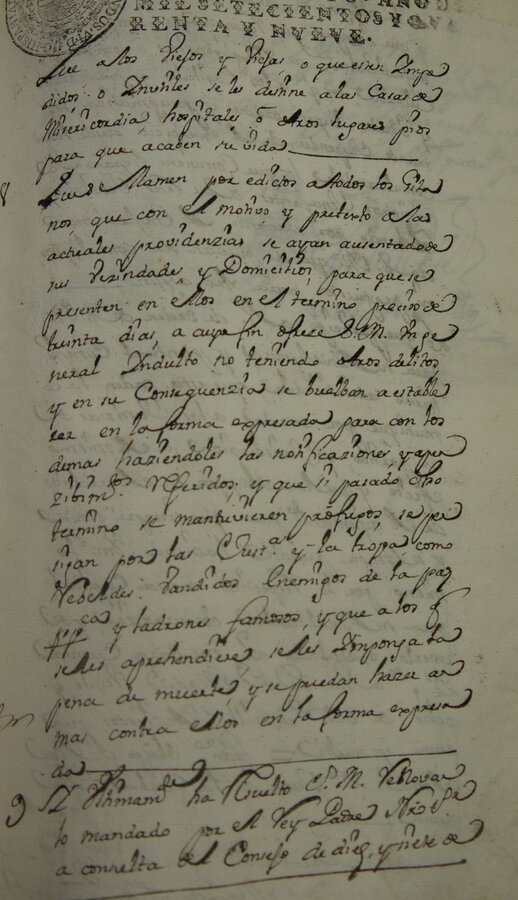 MIL SETECIENTOS Y QUA
RENTA Y NUEVE.
Que a los Viejos y Viejas o que esten Impe
didos o Inutiles se les destine a las Casas de
Misericordia, hospitales ô otros lugares pios
para que acaben su vida
8 Que se llamen por edictos a todos los Gita
nos que con el motivo y pretexto a las
actuales providenzias se ayan ausentado de
sus vezindades y Domicilios, para que se
presenten en ellos en el termino preciso de
treinta dias, a cuyo fin ofreze S.M. Yn ge
neral Indulto no teniendo otros delitos,
y en su Conseguenzia se buelban a estable
zer en la forma expresada para con los
demas haziendoles las notificaziones y aper
zibim.tos referidos; y que si pasado dho
termino se mantuvieren profugos, se per
sigan por las Just.as y la tropa como
Rebeldes: Vandidos Enemigos de la paz
pp.ca y ladrones famosos, y que a los q
se les aprehendiere, se les Imponga la
pena de muerte, y se puedan hazer ar
mas contra ellos en la forma expresa
da
9 Ultimam.te ha resuelto S. M. Renovar
lo mandado por el Rey Padre
a consulta del Consejo de diez y siete de